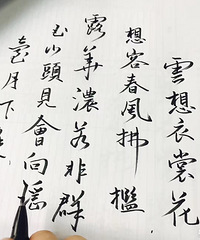 雲想衣裳花
想容春風拂檻
露華濃若非群
玉山頭見會向瑤
臺月下